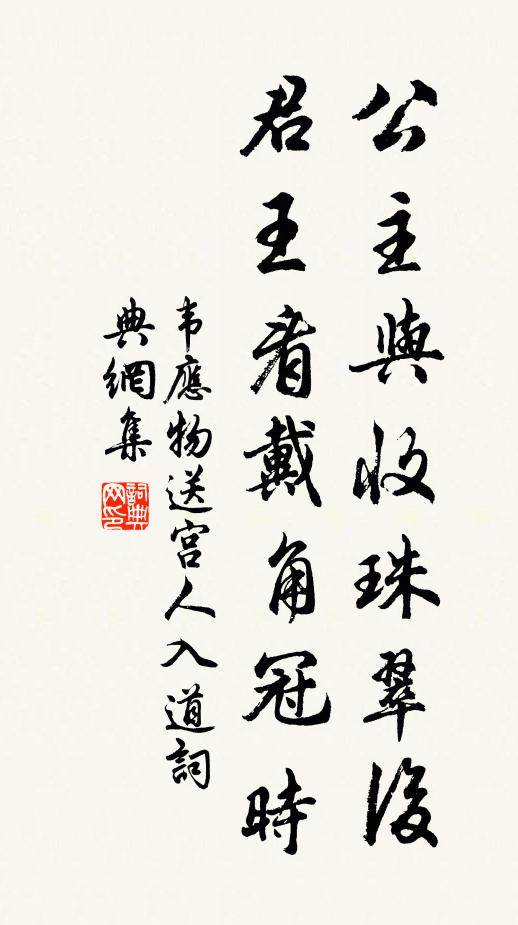 公主與收珠翠後
君王看戴角冠時
韦應物送宮人入道詞
典網集
詞典
网印